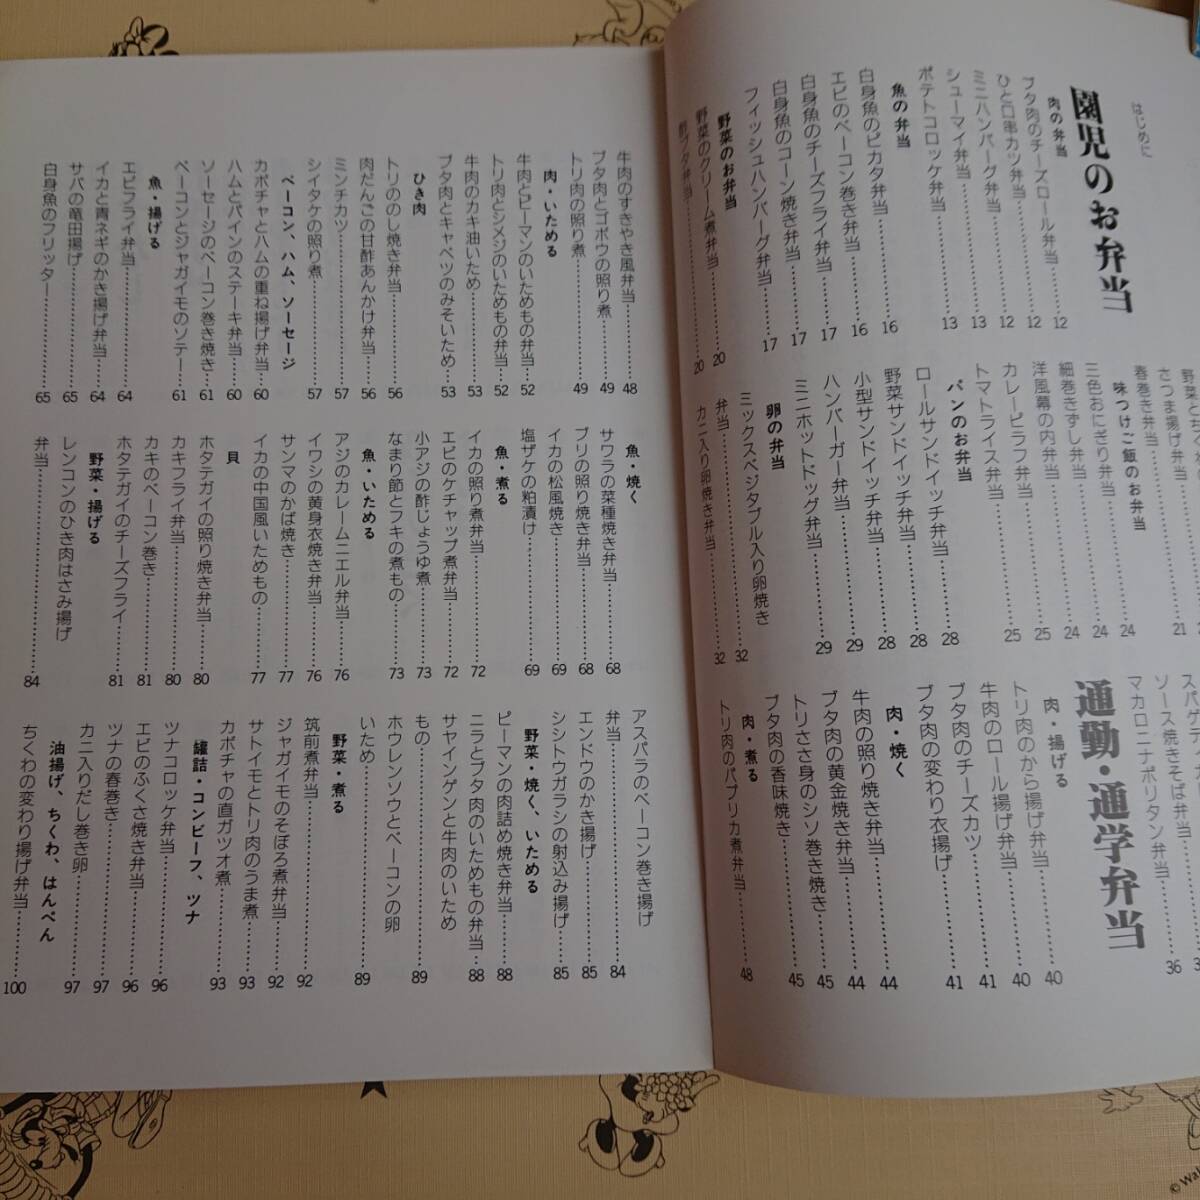 はじめに
園児のお弁当
肉の弁当
ブタ肉のチーズロール弁当……12
ひと口串カツ弁当……12
ミニハンバーグ弁当……13
シューマイ弁当……13
ポテトコロッケ弁当
魚の弁当
白身魚のピカタ弁当……16
エビのベーコン巻き弁当……16
白身魚のチーズフライ弁当……17
白身魚のコーン焼き弁当……17
フィッシュハンバーグ弁当……17
野菜のお弁当
野菜のクリーム煮弁当……20
酢ブタ弁当……20
さつま揚げ弁当……21
春巻き弁当
味つけご飯のお弁当
三色おにぎり弁当……24
細巻きずし弁当……24
洋風幕の内弁当……24
カレーピラフ弁当……25
トマトライス弁当……25
パンのお弁当
ロールサンドイッチ弁当……28
野菜サンドイッチ弁当……28
小型サンドイッチ弁当……28
ハンバーガー弁当……29
ミニホットドッグ弁当……29
卵の弁当
ミックスベジタブル入り卵焼き
弁当……32
カニ入り卵焼き弁当……32
ソース焼きそば弁当
マカロニナポリタン弁当……36
通勤・通学弁当
肉・揚げる
トリ肉のから揚げ弁当……40
牛肉のロール揚げ弁当……40
ブタ肉のチーズカツ……41
ブタ肉の変わり衣揚げ……41
肉・焼く
牛肉の照り焼き弁当……44
ブタ肉の黄金焼き弁当……44
トリささ身のシソ巻き焼き……45
ブタ肉の香味焼き……45
肉・煮る
トリ肉のパプリカ煮弁当……48
牛肉のすきやき風弁当……48
ブタ肉とゴボウの照り煮……49
トリ肉の照り煮……49
肉・いためる
牛肉とピーマンのいためもの弁当……52
トリ肉とシメジのいためもの弁当……52
牛肉のカキ油いため……53
ブタ肉とキャベツのみそいため……53
ひき肉
トリののし焼き弁当……56
肉だんごの甘酢あんかけ弁当……56
ミンチカツ……57
シイタケの照り煮……57
ベーコン、ハム、ソーセージ
カボチャとハムの重ね揚げ弁当……60
ハムとパインのステーキ弁当……60
ソーセージのベーコン巻き焼き……61
ベーコンとジャガイモのソテー……61
魚・揚げる
エビフライ弁当……64
イカと青ネギのかき揚げ弁当……64
サバの竜田揚げ……65
白身魚のフリッター……65
魚・焼く
サワラの菜種焼き弁当……68
ブリの照り焼き弁当……68
イカの松風焼き……69
塩ザケの粕漬け……69
魚・煮る
イカの照り煮弁当……72
エビのケチャップ煮弁当……72
小アジの酢じょうゆ煮……73
なまり節とフキの煮もの……73
魚・いためる
アジのカレームニエル弁当……76
イワシの黄身衣焼き弁当……76
サンマのかば焼き……77
イカの中国風いためもの……77
貝
ホタテガイの照り焼き弁当……80
カキフライ弁当……80
カキのベーコン巻き……81
ホタテガイのチーズフライ……81
野菜・揚げる
レンコンのひき肉はさみ揚げ
弁当……84
アスパラのベーコン巻き揚げ
弁当……84
エンドウのかき揚げ……85
シシトウガラシの射込み揚げ……85
野菜・焼く、いためる
ピーマンの肉詰め焼き弁当……88
ニラとブタ肉のいためもの弁当……88
サヤインゲンと牛肉のいため
もの……89
ホウレンソウとベーコンの卵
いため……89
野菜・煮る
筑前煮弁当……92
ジャガイモのそぼろ煮弁当……92
サトイモとトリ肉のうま煮……93
カボチャの直ガツオ煮……93
罐詰・コンビーフ、ツナ
ツナコロッケ弁当……96
エビのふくさ焼き弁当……96
ツナの春巻き……97
カニ入りだし巻き卵……97
油揚げ、ちくわ、はんぺん
ちくわの変わり揚げ弁当……100